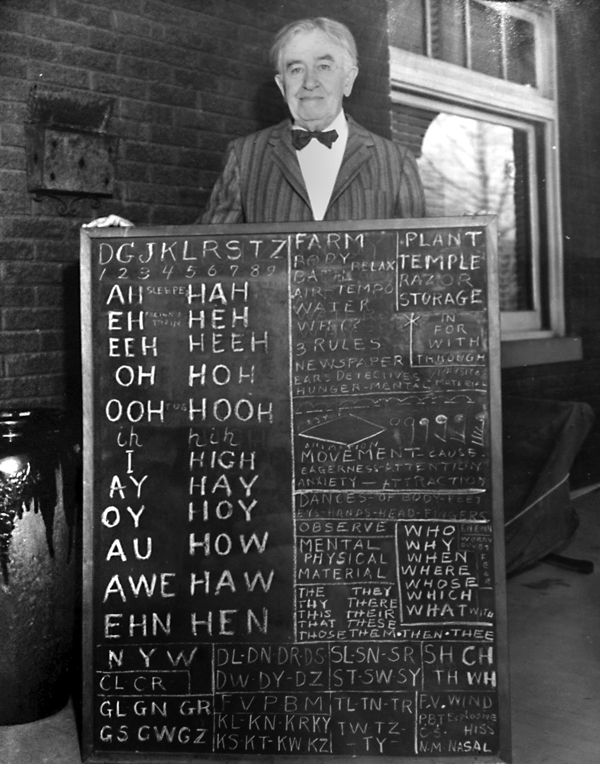 DGJKLRSTZ
1 2 3 4 5 6 7 8 9
AH HAH
EH HEH
EEH HEEH
OH HOH
OOH HOOH
ih hih
I HIGH
AY HAY
OY HOY
AU HOW
AWE HAW
EHN HEN
FARM
BODY
RELAX
AIR-TEMPO
WATER
WHY?
3 RULES
NEWSPAPER
EARS DETECTIVES
HUNGER-MENTAL
PLANT
TEMPLE
RAZOR
STORAGE
IN
FOR
WITH
THROUGH
MOVEMENT-CAUSE-
EAGERNESS-ATTENTION
ANXIETY-ATTRACTION
DANCES-OF BODY-FEET
EYS-HANDS-HEAD-FINGERS
OBSERVE
MENTAL
PHYSICAL
MATERIAL
WHO
WHY
WHEN
WHERE
WHOSE
WHICH
WHAT WITH
THE THEY
THY THERE
THIS THEIR
THAT THESE
THOSE THEM·THEN·THEE
N Y W
CL CR
GL GN GR
GS GWGZ
DL-DN DR-DS
DW-DY-DZ
SL-SN-SR
ST-SWSY
SH CH
TH WH
F V P B M
KL-KN-KRKY
KS KT-KW KZ
TL-TN-TR
TW TZ-
-TY-
F.V. WIND
P.B.T Explosive
C.S. HISS
N.M. NASAL